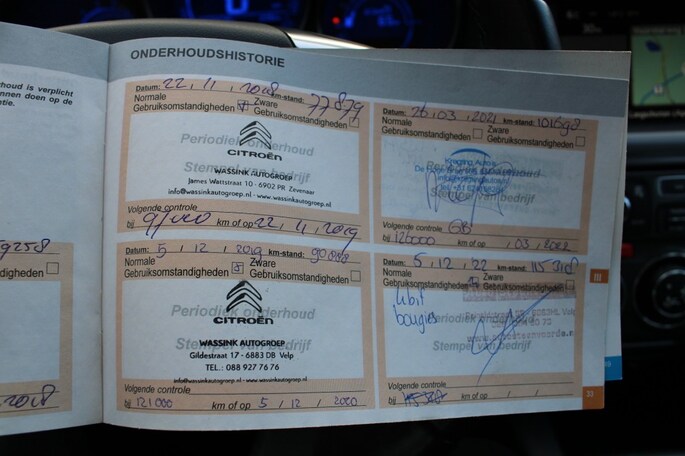 ONDERHOUDSHISTORIE
houd is verplicht
nnen doen op de
ntie.
Datum: 22, 11, 2018 km-stand: 77879
Normale Zware
Gebruiksomstandigheden Gebruiksomstandigheden
Periodiek onderhoud
CITROËN
Stempel van bedrijf
WASSINK AUTOGROEP
James Wattstraat 10 - 6902 PR Zevenaar
info@wassinkautogroep.nl - www.wassinkautogroep.nl
Volgende controle
bij km of op 22, 11, 2019
Datum: 5, 12, 2019 km-stand:
Normale Zware
Gebruiksomstandigheden Gebruiksomstandigheden
Periodiek onderhoud
CITROËN
Stempel van bedrijf
WASSINK AUTOGROEP
Gildestraat 17 - 6883 DB Velp
TEL.: 088 927 76 76
info@wassinkautogroep.nl - www.wassinkautogroep.nl
Volgende controle
bij 121000 km of op 5 / 12 / 2020
Datum: 26, 03, 2021 km-stand: 101698
Normale Zware
Gebruiksomstandigheden Gebruiksomstandigheden
Periodiek onderhoud
Stempel van bedrijf
Volgende controle
bij 120000 km of op / 03 / 2022
Datum: 5, 12, 22 km-stand: 115318
Normale Zware
Gebruiksomstandigheden Gebruiksomstandigheden
bougies
Periodiek onderhoud
Stempel van bedrijf
Volgende controle
bij km of op / /
33